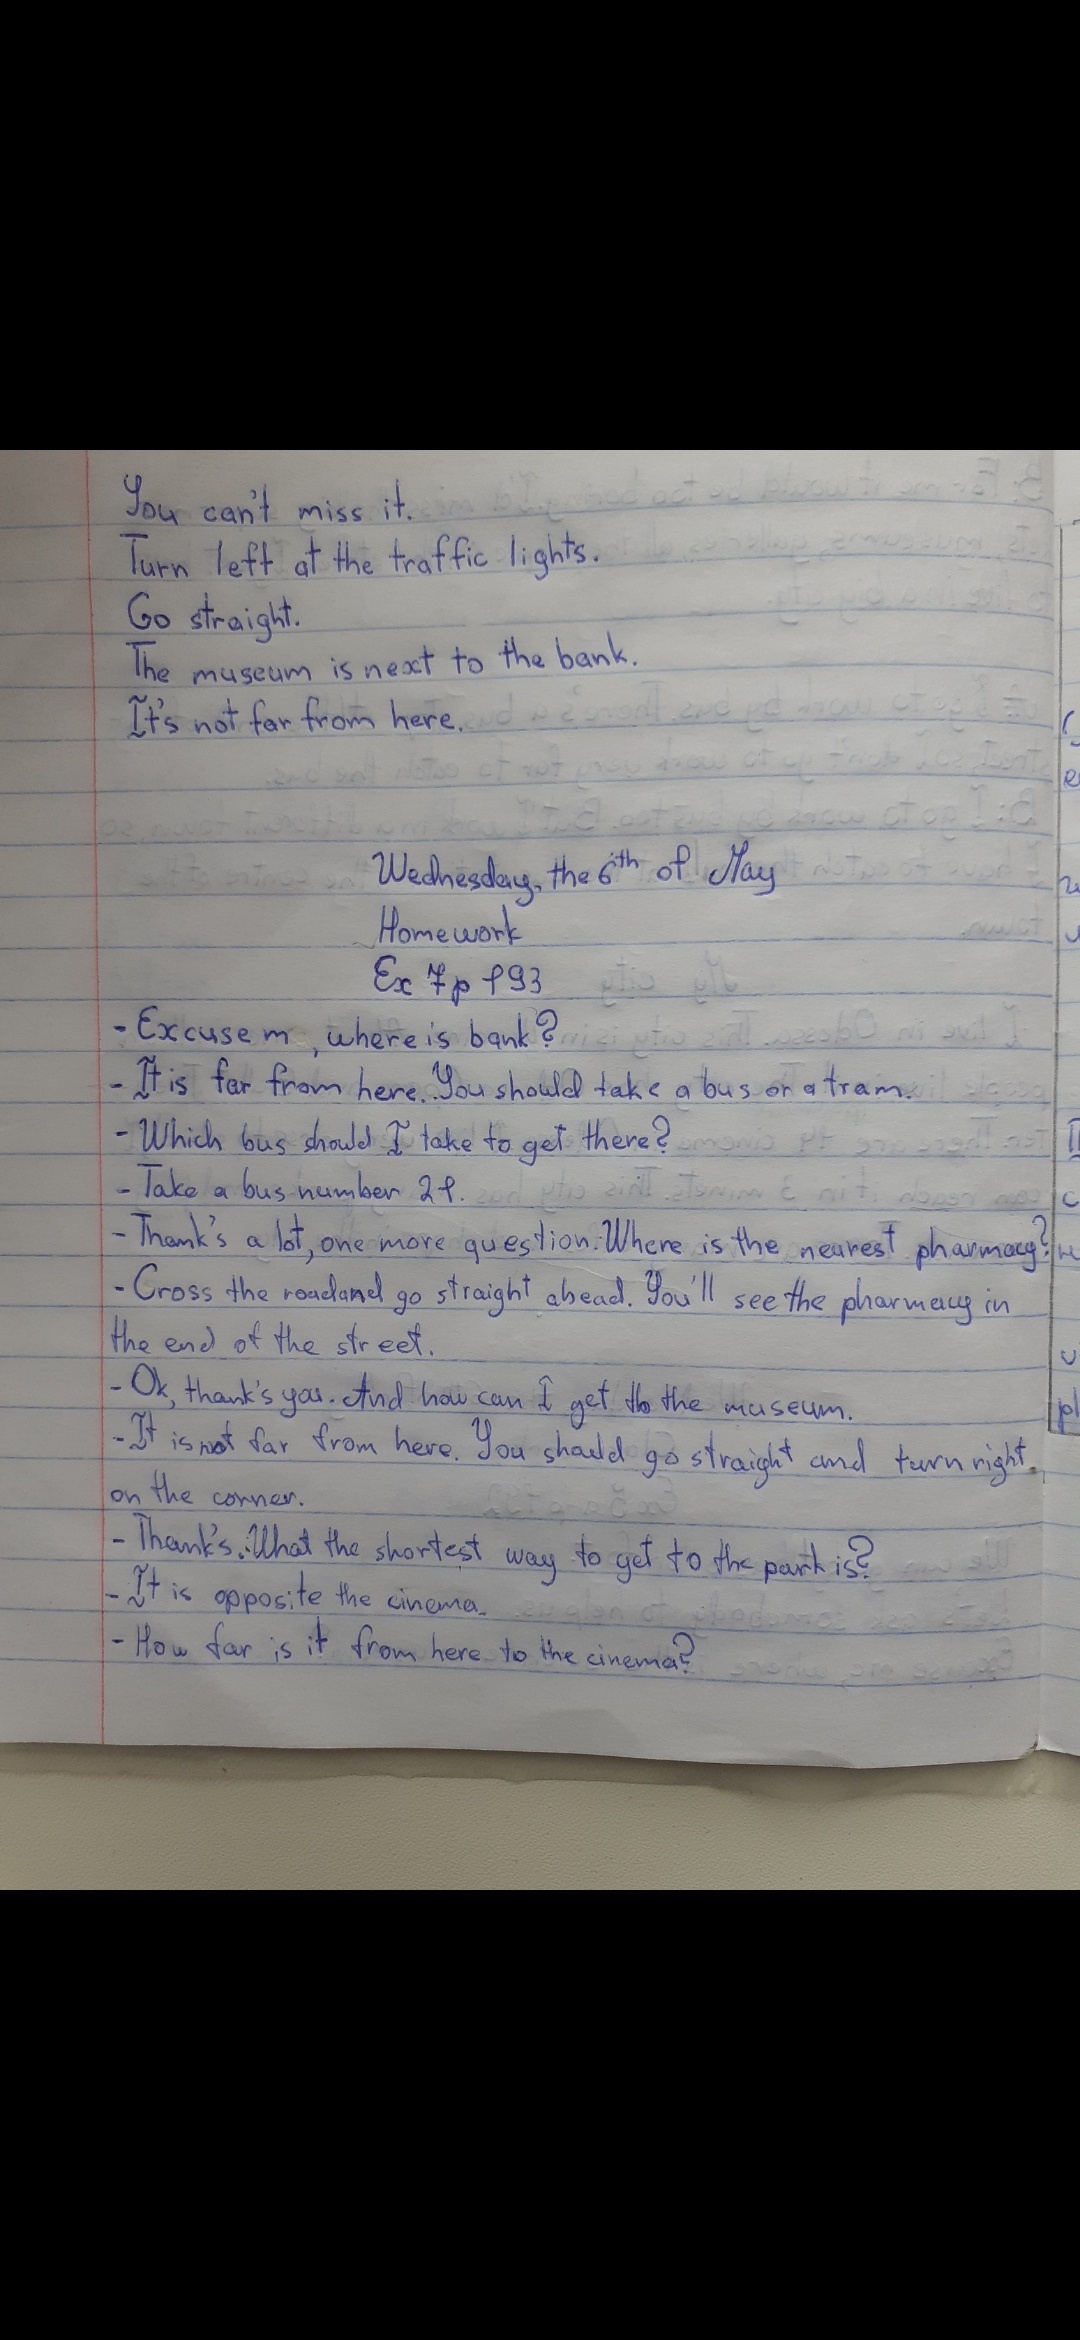 You can't miss it.
Turn left at the traffic lights.
Go straight.
The museum is next to the bank.
It's not far from here.
Wednesday, the 6th of May
Homework
Ex 7 p 193
- Excuse m, where is bank?
- It is far from here. You should take a bus or a tram.
- Which bus should I take to get there?
- Take a bus number 21.
- Thank's a lot, one more question. Where is the nearest pharmacy?
- Cross the road and go straight ahead. You'll see the pharmacy in
the end of the street.
- Ok, thank's you. And how can I get to the museum.
- It is not far from here. You should go straight and turn right
on the corner.
- Thank's. What the shortest way to get to the park is?
- It is opposite the cinema.
- How far is it from here to the cinema?